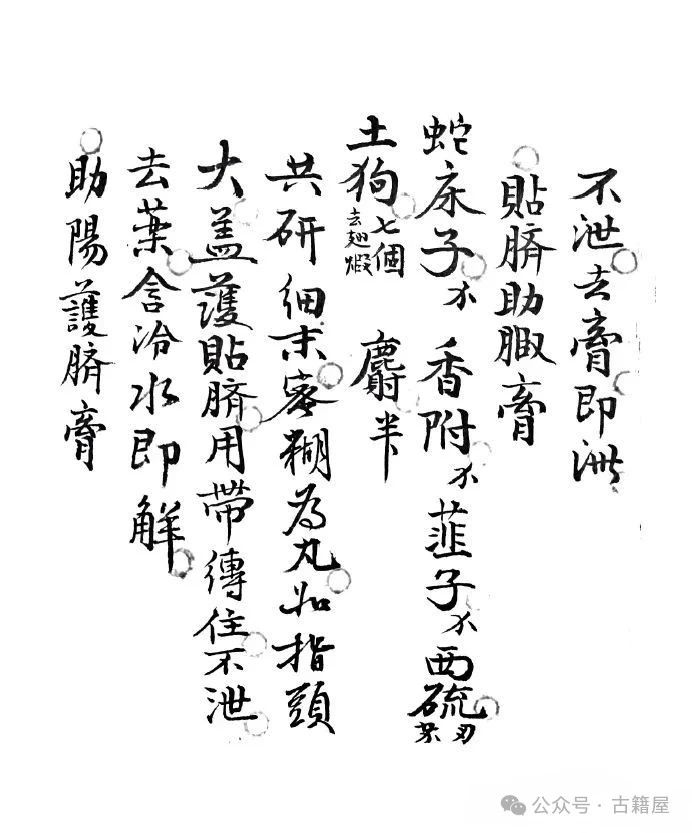 不泄去膏即泄
貼臍助腽膏
蛇床子 香附 韮子 西硫
土狗七個去翅煅 麝半
共研細末蜜糊為丸如指頭
大蓋護貼臍用帶傳住不泄
去葉含冷水即解
助陽護臍膏
公众号·古籍屋